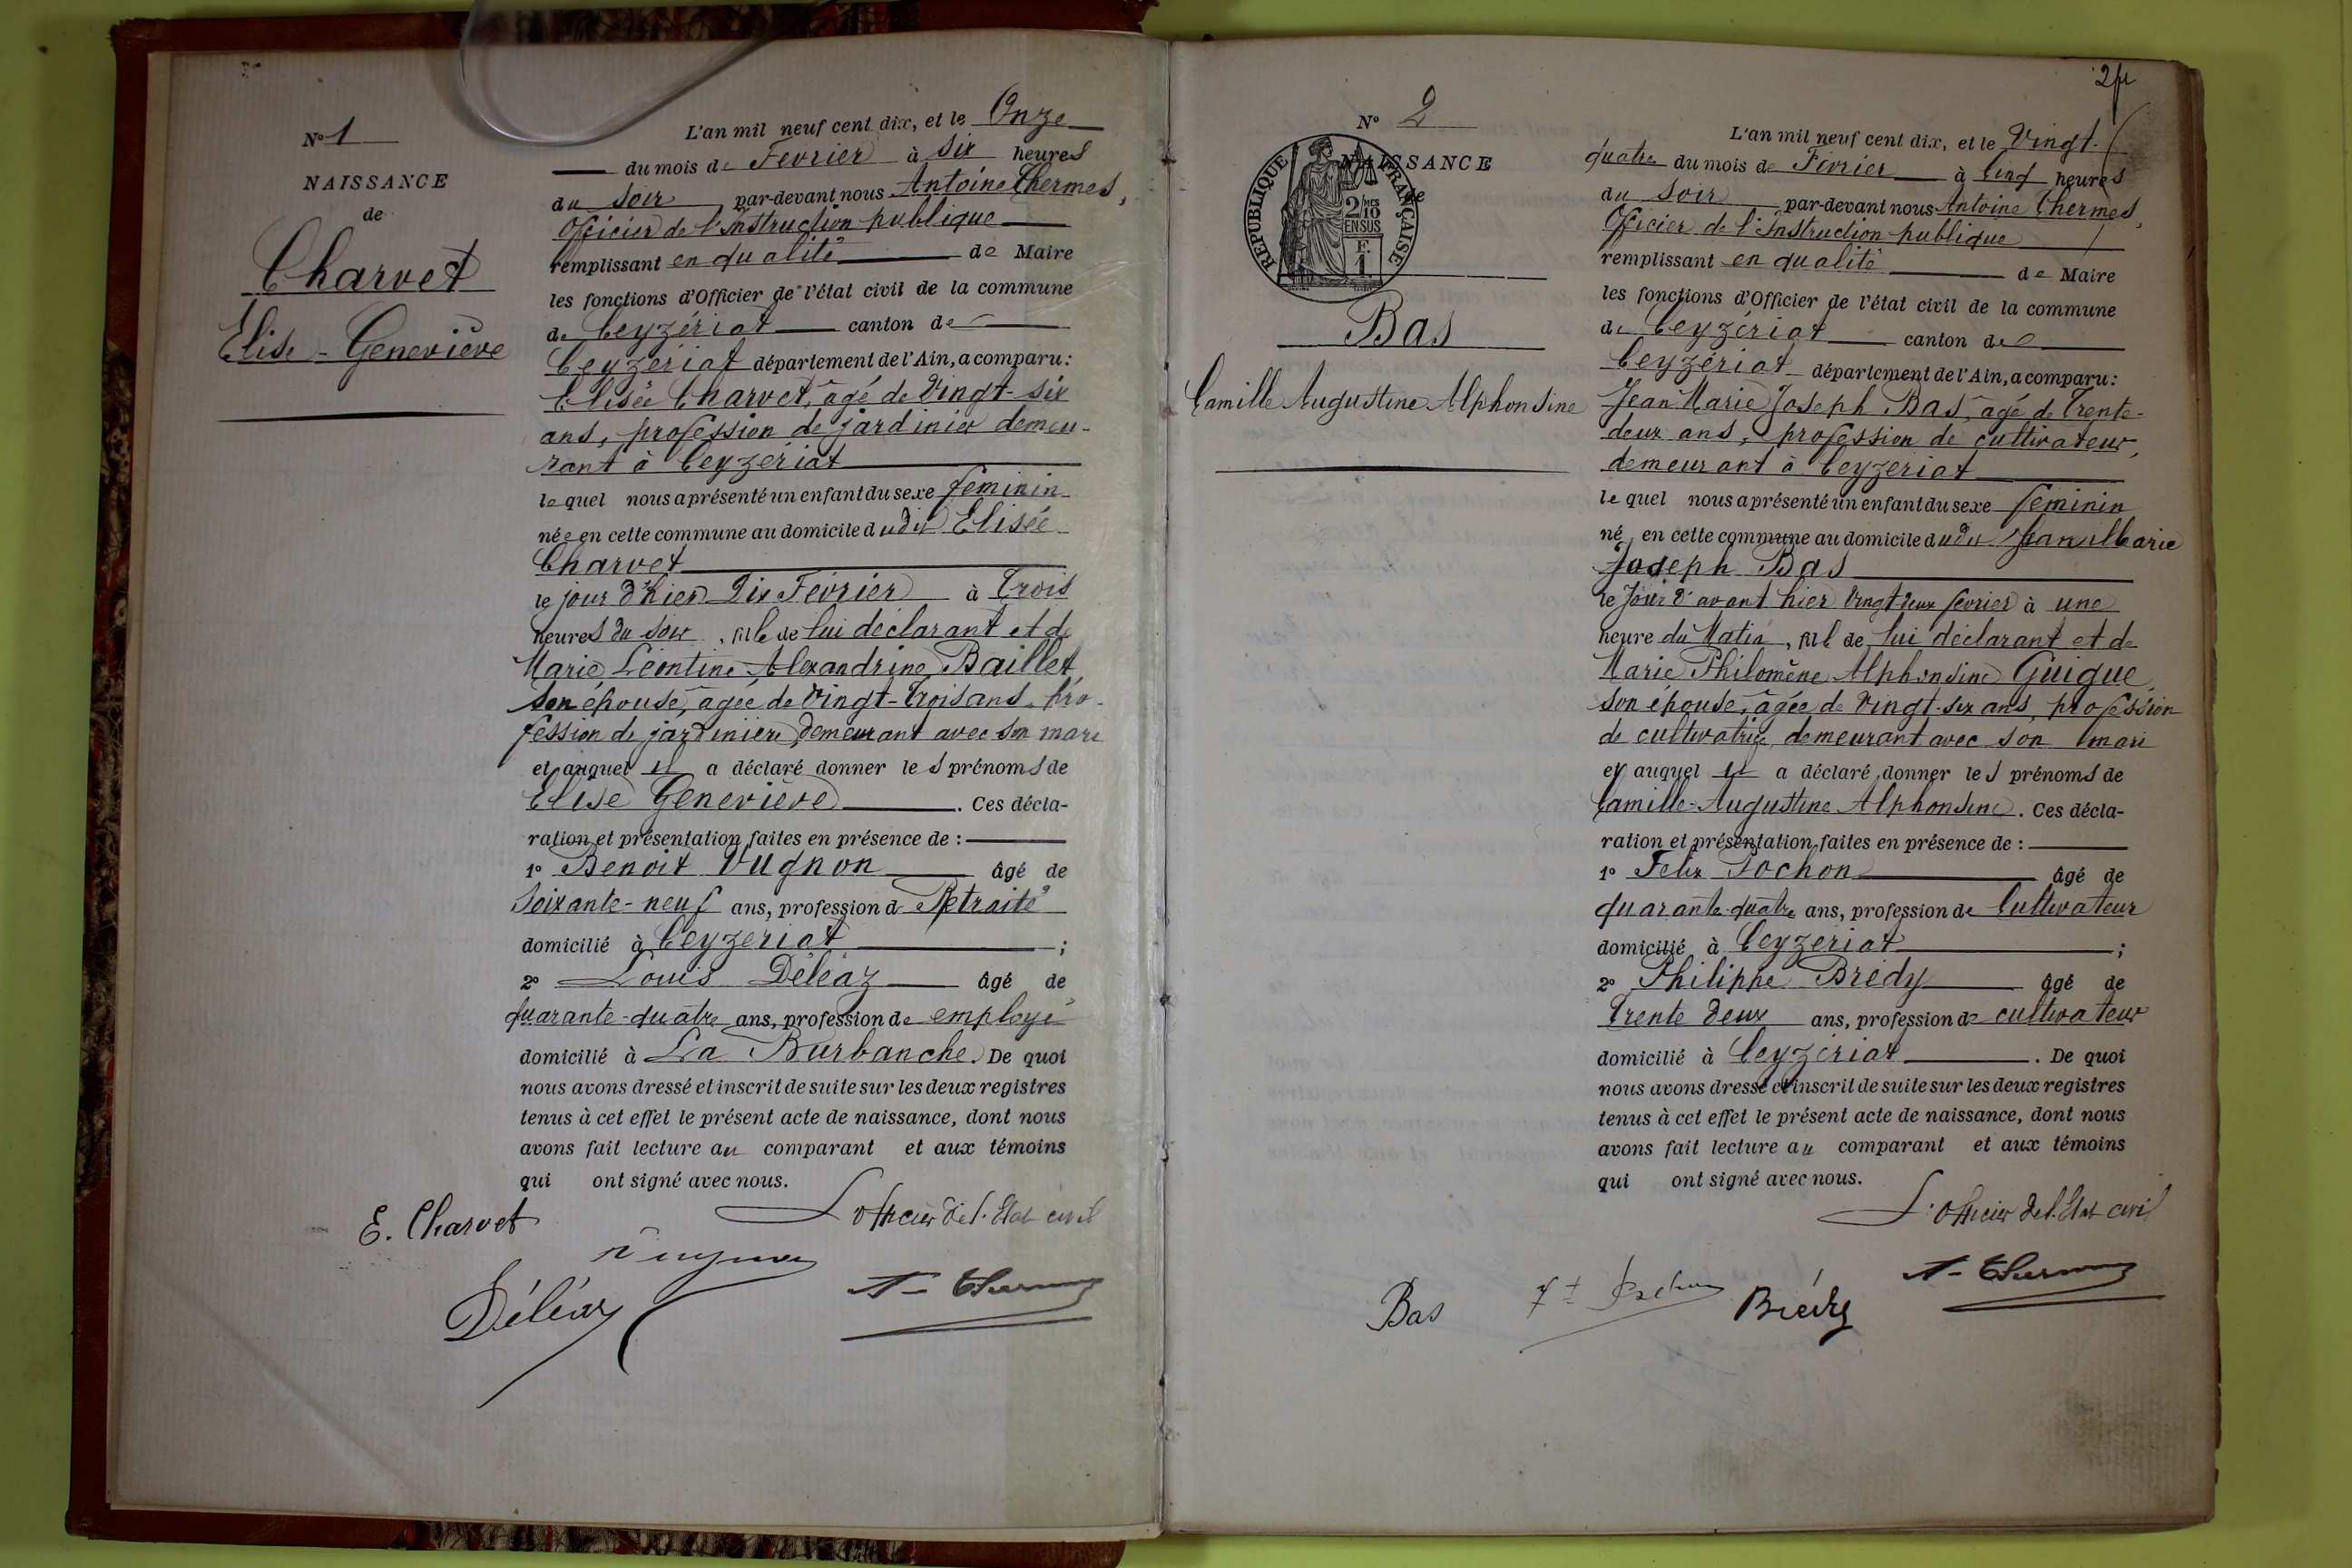 N° 1
NAISSANCE
de
Charvet
Elise - Geneviève
L'an mil neuf cent dix, et le Onze
du mois de Février à six heures
du soir, par-devant nous Antoine Chermes,
Officier de l'instruction publique
remplissant en qualité de Maire
les fonctions d'Officier de l'état civil de la commune
de Ceyzériat canton de
Ceyzeriat département de l'Ain, a comparu:
Elisée Charvet, âgé de Vingt-six
ans, profession de jardinier demeu-
rant à Ceyzeriat
lequel nous a présenté un enfant du sexe féminin
née en cette commune au domicile dudit Elisée
Charvet
le jour d'hier Dix Février à Trois
heures du soir, fille de lui déclarant et de
Marie Léontine Alexandrine Baillet
son épouse, âgée de Vingt-trois ans, pro-
fession de jardinière demeurant avec son mari
et auquel il a déclaré donner les prénoms de
Elise Geneviève. Ces décla-
ration et présentation faites en présence de :
1° Benoit Vugnon âgé de
Soixante-neuf ans, profession d Retraité
domicilié à Ceyzeriat ;
2° Louis Déléaz âgé de
quarante-quatre ans, profession de employé
domicilié à La Burbanche. De quoi
nous avons dressé et inscrit de suite sur les deux registres
tenus à cet effet le présent acte de naissance, dont nous
avons fait lecture au comparant et aux témoins
qui ont signé avec nous.
E. Charvet
L'officier de l'Etat civil
Déléaz
2
N° 2
NAISSANCE
de
REPUBLIQUE FRANÇAISE
2/10
MES
EN SUS
F.
1
Bas
Camille Augustine Alphonsine
L'an mil neuf cent dix, et le Vingt-
quatre du mois de Février à cinq heures
du soir par-devant nous Antoine Chermes,
Officier de l'instruction publique
remplissant en qualité de Maire
les fonctions d'Officier de l'état civil de la commune
de Ceyzériat canton de
Ceyzériat département de l'Ain, a comparu:
Jean Marie Joseph Bas, âgé de Trente-
deux ans, profession de cultivateur,
demeurant à Ceyzeriat
lequel nous a présenté un enfant du sexe féminin
né en cette commune au domicile dudit Jean Marie
Joseph Bas
le jour d'avant hier Vingt deux février à une
heure du Matin, fille de lui déclarant et de
Marie Philomène Alphonsine Guigue,
son épouse, âgée de Vingt-six ans, profession
de cultivatrice, demeurant avec son mari
et auquel il a déclaré donner les prénoms de
Camille-Augustine Alphonsine. Ces décla-
ration et présentation faites en présence de :
1° Felix Pochon âgé de
quarante-quatre ans, profession de Cultivateur
domicilié à Ceyzeriat ;
2° Philippe Brédy âgé de
Trente deux ans, profession de cultivateur
domicilié à Ceyzériat. De quoi
nous avons dressé et inscrit de suite sur les deux registres
tenus à cet effet le présent acte de naissance, dont nous
avons fait lecture au comparant et aux témoins
qui ont signé avec nous.
L'officier de l'Etat civil
Bas
Brédy